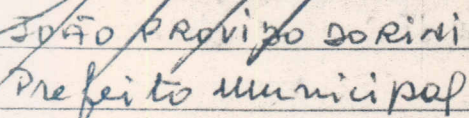 JOÃO PROVIZO DORINI
Prefeito Municipal